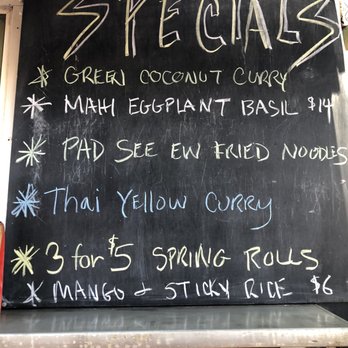 SPECIALS
* GREEN COCONUT CURRY
* MAHI EGGPLANT BASIL $14
* PAD SEE EW FRIED NOODLES
* Thai YELLOW CURRY
* 3 for $5 SPRING ROLLS
X MANGO & STICKY RICE $6